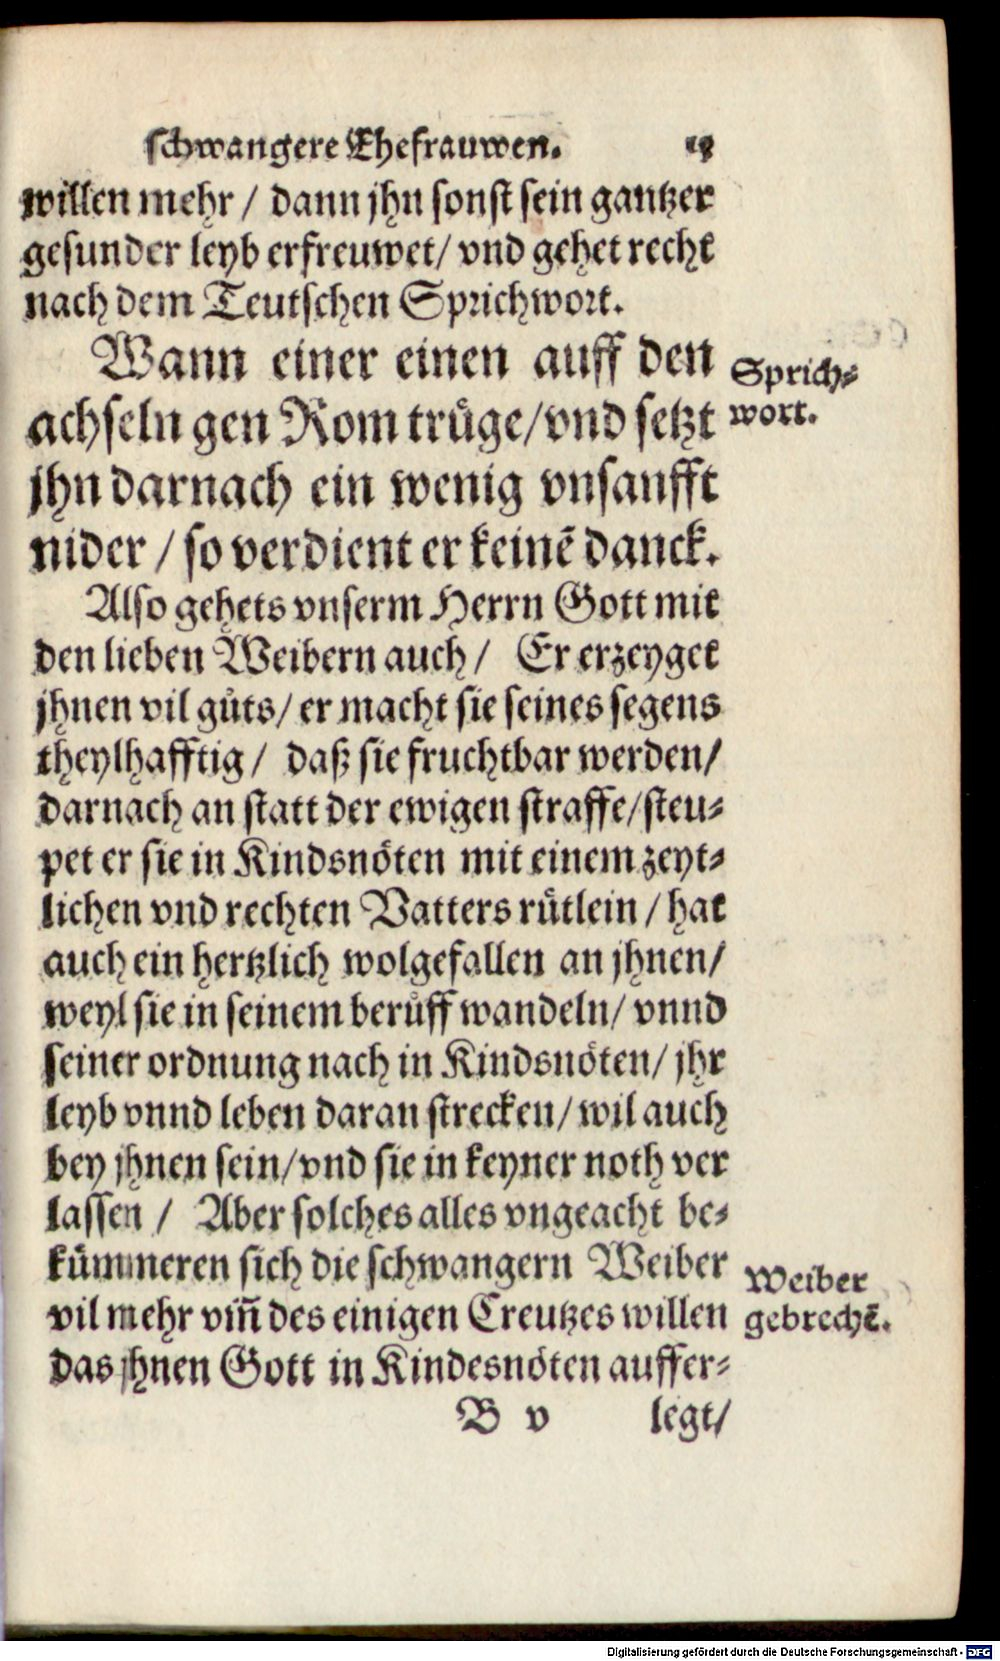 schwangere Ehefrauwen.
willen mehr / dann jhn sonst sein gantzer
gesunder leyb erfreuwet/ vnd gehet recht
nach dem Teutschen Sprichwort.
Wann einer einen auff den
achseln gen Rom truͤge/vnd setzt
jhn darnach ein wenig vnsanfft
nider / so verdient er keinē danck.
Sprich⸗
wort.
Also gehets vnserm Herrn Gott mit
den lieben Weibern auch / Er erzeyget
jhnen vil guͦts/ er macht sie seines segens
theylhafftig / daß sie fruchtbar werden/
darnach an statt der ewigen straffe/steu⸗
pet er sie in Kindsnoͤten mit einem zeyt⸗
lichen vnd rechten Vatters ruͤtlein / hat
auch ein hertzlich wolgefallen an jhnen/
weyl sie in seinem beruͦff wandeln/ vnnd
seiner ordnung nach in Kindsnoͤten/ jhr
leyb vnnd leben daran strecken/ wil auch
bey jhnen sein/vnd sie in keyner noth ver
lassen / Aber solches alles vngeacht be⸗
kuͤmmeren sich die schwangern Weiber
vil mehr vm̄ des einigen Creutzes willen
das jhnen Gott in Kindesnoͤten auffer⸗
Weiber
gebrechē.
B v legt/
Digitalisierung gefördert durch die Deutsche Forschungsgemeinschaft - DFG